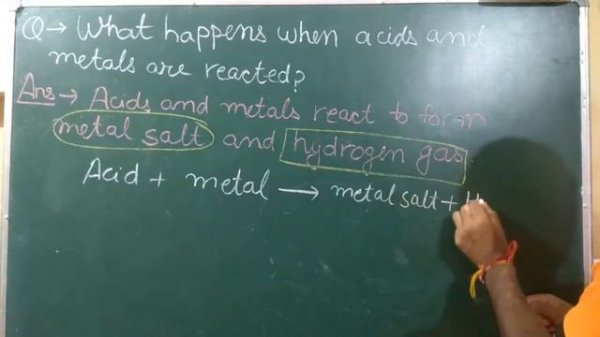 Q → What happens when acids and
metals are reacted?
Ans → Acids and metals react to form
metal salt and hydrogen gas
Acid + metal → metal salt + H